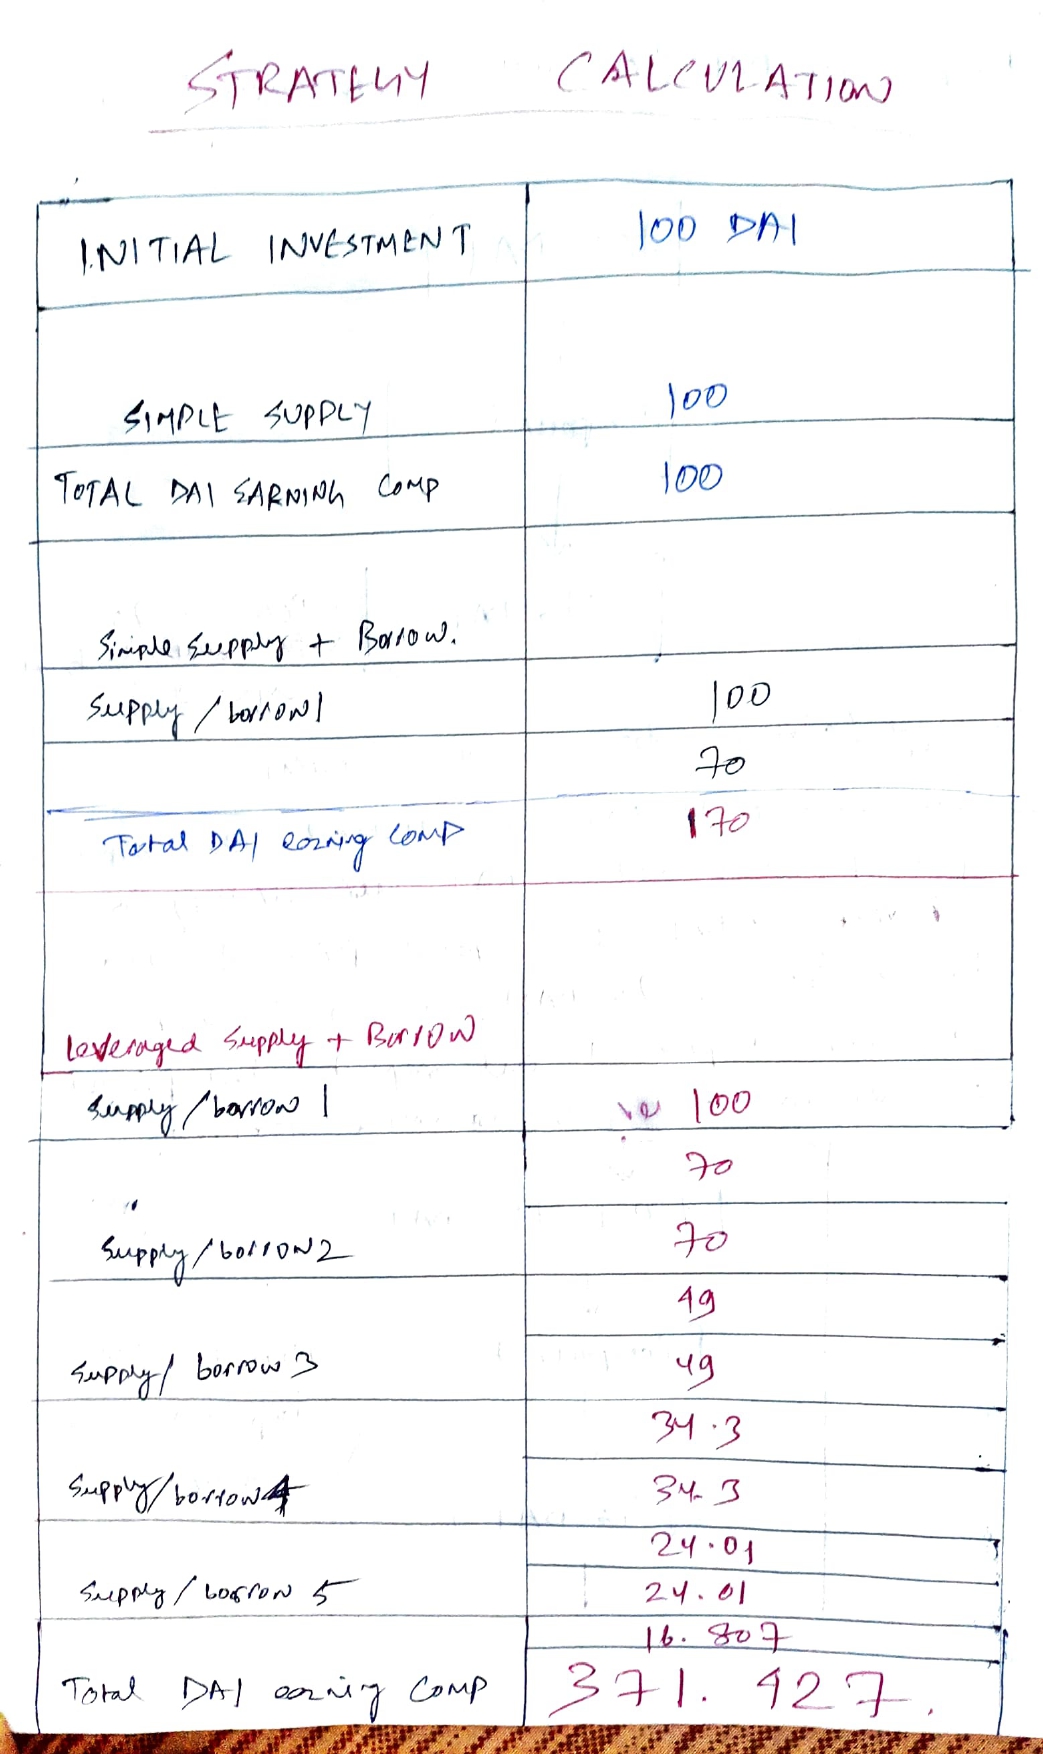 STRATEGY CALCULATION
INITIAL INVESTMENT 100 DAI
SIMPLE SUPPLY 100
TOTAL DAI EARNING COMP 100
Simple Supply + Borrow.
Supply / borrow 1 100
70
Total DAI earning COMP 170
Leveraged Supply + Borrow
Supply / borrow 1 100
70
Supply / borrow 2 70
49
Supply / borrow 3 49
34.3
Supply / borrow 4 34.3
24.01
Supply / borrow 5 24.01
16.807
Total DAI earning COMP 371.927.